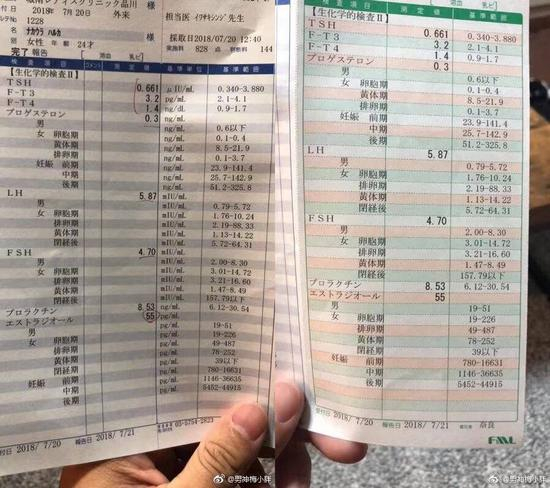 レディスクリニック品川
様
2018年 7月20日 外来
1228
ナカウラ ハルカ 様
女性 年齢 24才
完了 報告
担当医 イワサキシンジ先生
採取日 2018/07/20 12:40
実施料 828 点 判断料 144
溶血 乳ビ
検査項目 コメント 測定値 基準単位 基準範囲
【生化学的検査Ⅱ】
TSH 0.661 μIU/mL 0.340-3.880
F-T3 3.2 pg/mL 2.1-4.1
F-T4 1.4 ng/dL 0.9-1.7
プロゲステロン 0.3 ng/mL
男 ng/mL 0.6以下
女 卵胞期 ng/mL 0.1-0.4
黄体期 ng/mL 8.5-21.9
排卵期 ng/mL 0.1-3.7
妊娠 前期 ng/mL 23.9-141.4
中期 ng/mL 25.7-142.9
後期 ng/mL 51.2-325.8
LH 5.87 mIU/mL
男 mIU/mL 0.79-5.72
女 卵胞期 mIU/mL 1.76-10.24
排卵期 mIU/mL 2.19-88.33
黄体期 mIU/mL 1.13-14.22
閉経後 mIU/mL 5.72-64.31
FSH 4.70 mIU/mL
男 mIU/mL 2.00-8.30
女 卵胞期 mIU/mL 3.01-14.72
排卵期 mIU/mL 3.21-16.60
黄体期 mIU/mL 1.47-8.49
閉経後 mIU/mL 157.79以下
プロラクチン 8.53 ng/mL 6.12-30.54
エストラジオール 55 pg/mL
男 pg/mL 19-51
女 卵胞期 pg/mL 19-226
排卵期 pg/mL 49-487
黄体期 pg/mL 78-252
閉経後 pg/mL 39以下
妊娠 前期 pg/mL 780-16631
中期 pg/mL 1146-36635
後期 pg/mL 5452-44915
03-5754-2823
付日 2018/ 7/20 報告日 2018/ 7/21
溶血 乳ビ
検査項目 測定値 基準範囲
【生化学的検査Ⅱ】
TSH 0.661 0.340-3.880
F-T3 3.2 2.1-4.1
F-T4 1.4 0.9-1.7
プロゲステロン 0.3
男 0.6以下
女 卵胞期 0.1-0.4
黄体期 8.5-21.9
排卵期 0.1-3.7
妊娠 前期 23.9-141.4
中期 25.7-142.9
後期 51.2-325.8
LH 5.87
男 0.79-5.72
女 卵胞期 1.76-10.24
排卵期 2.19-88.33
黄体期 1.13-14.22
閉経後 5.72-64.31
FSH 4.70
男 2.00-8.30
女 卵胞期 3.01-14.72
排卵期 3.21-16.60
黄体期 1.47-8.49
閉経後 157.79以下
プロラクチン 8.53 6.12-30.54
エストラジオール 55
男 19-51
女 卵胞期 19-226
排卵期 49-487
黄体期 78-252
閉経後 39以下
妊娠 前期 780-16631
中期 1146-36635
後期 5452-44915
受付日 2018/ 7/20 報告日 2018/ 7/21 奈良
FML
@男神梅小胖
@男神梅小胖